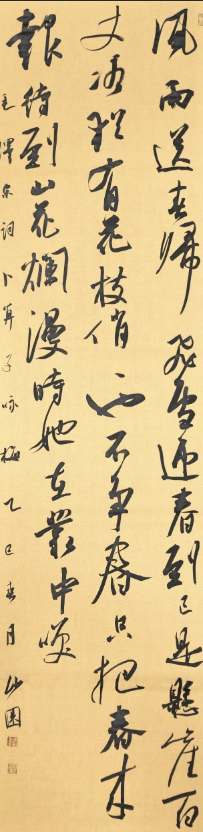 風雨送春歸飛雪迎春到已是懸崖百
丈冰猶有花枝俏也不争春只把春来
報待到山花爛漫時她在叢中咲
毛澤东詞卜算子咏梅乙巳春月